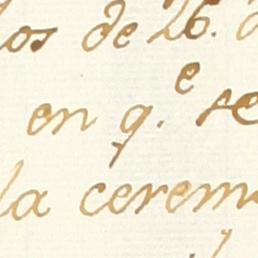 los de 26.
en q.e se
la cerem